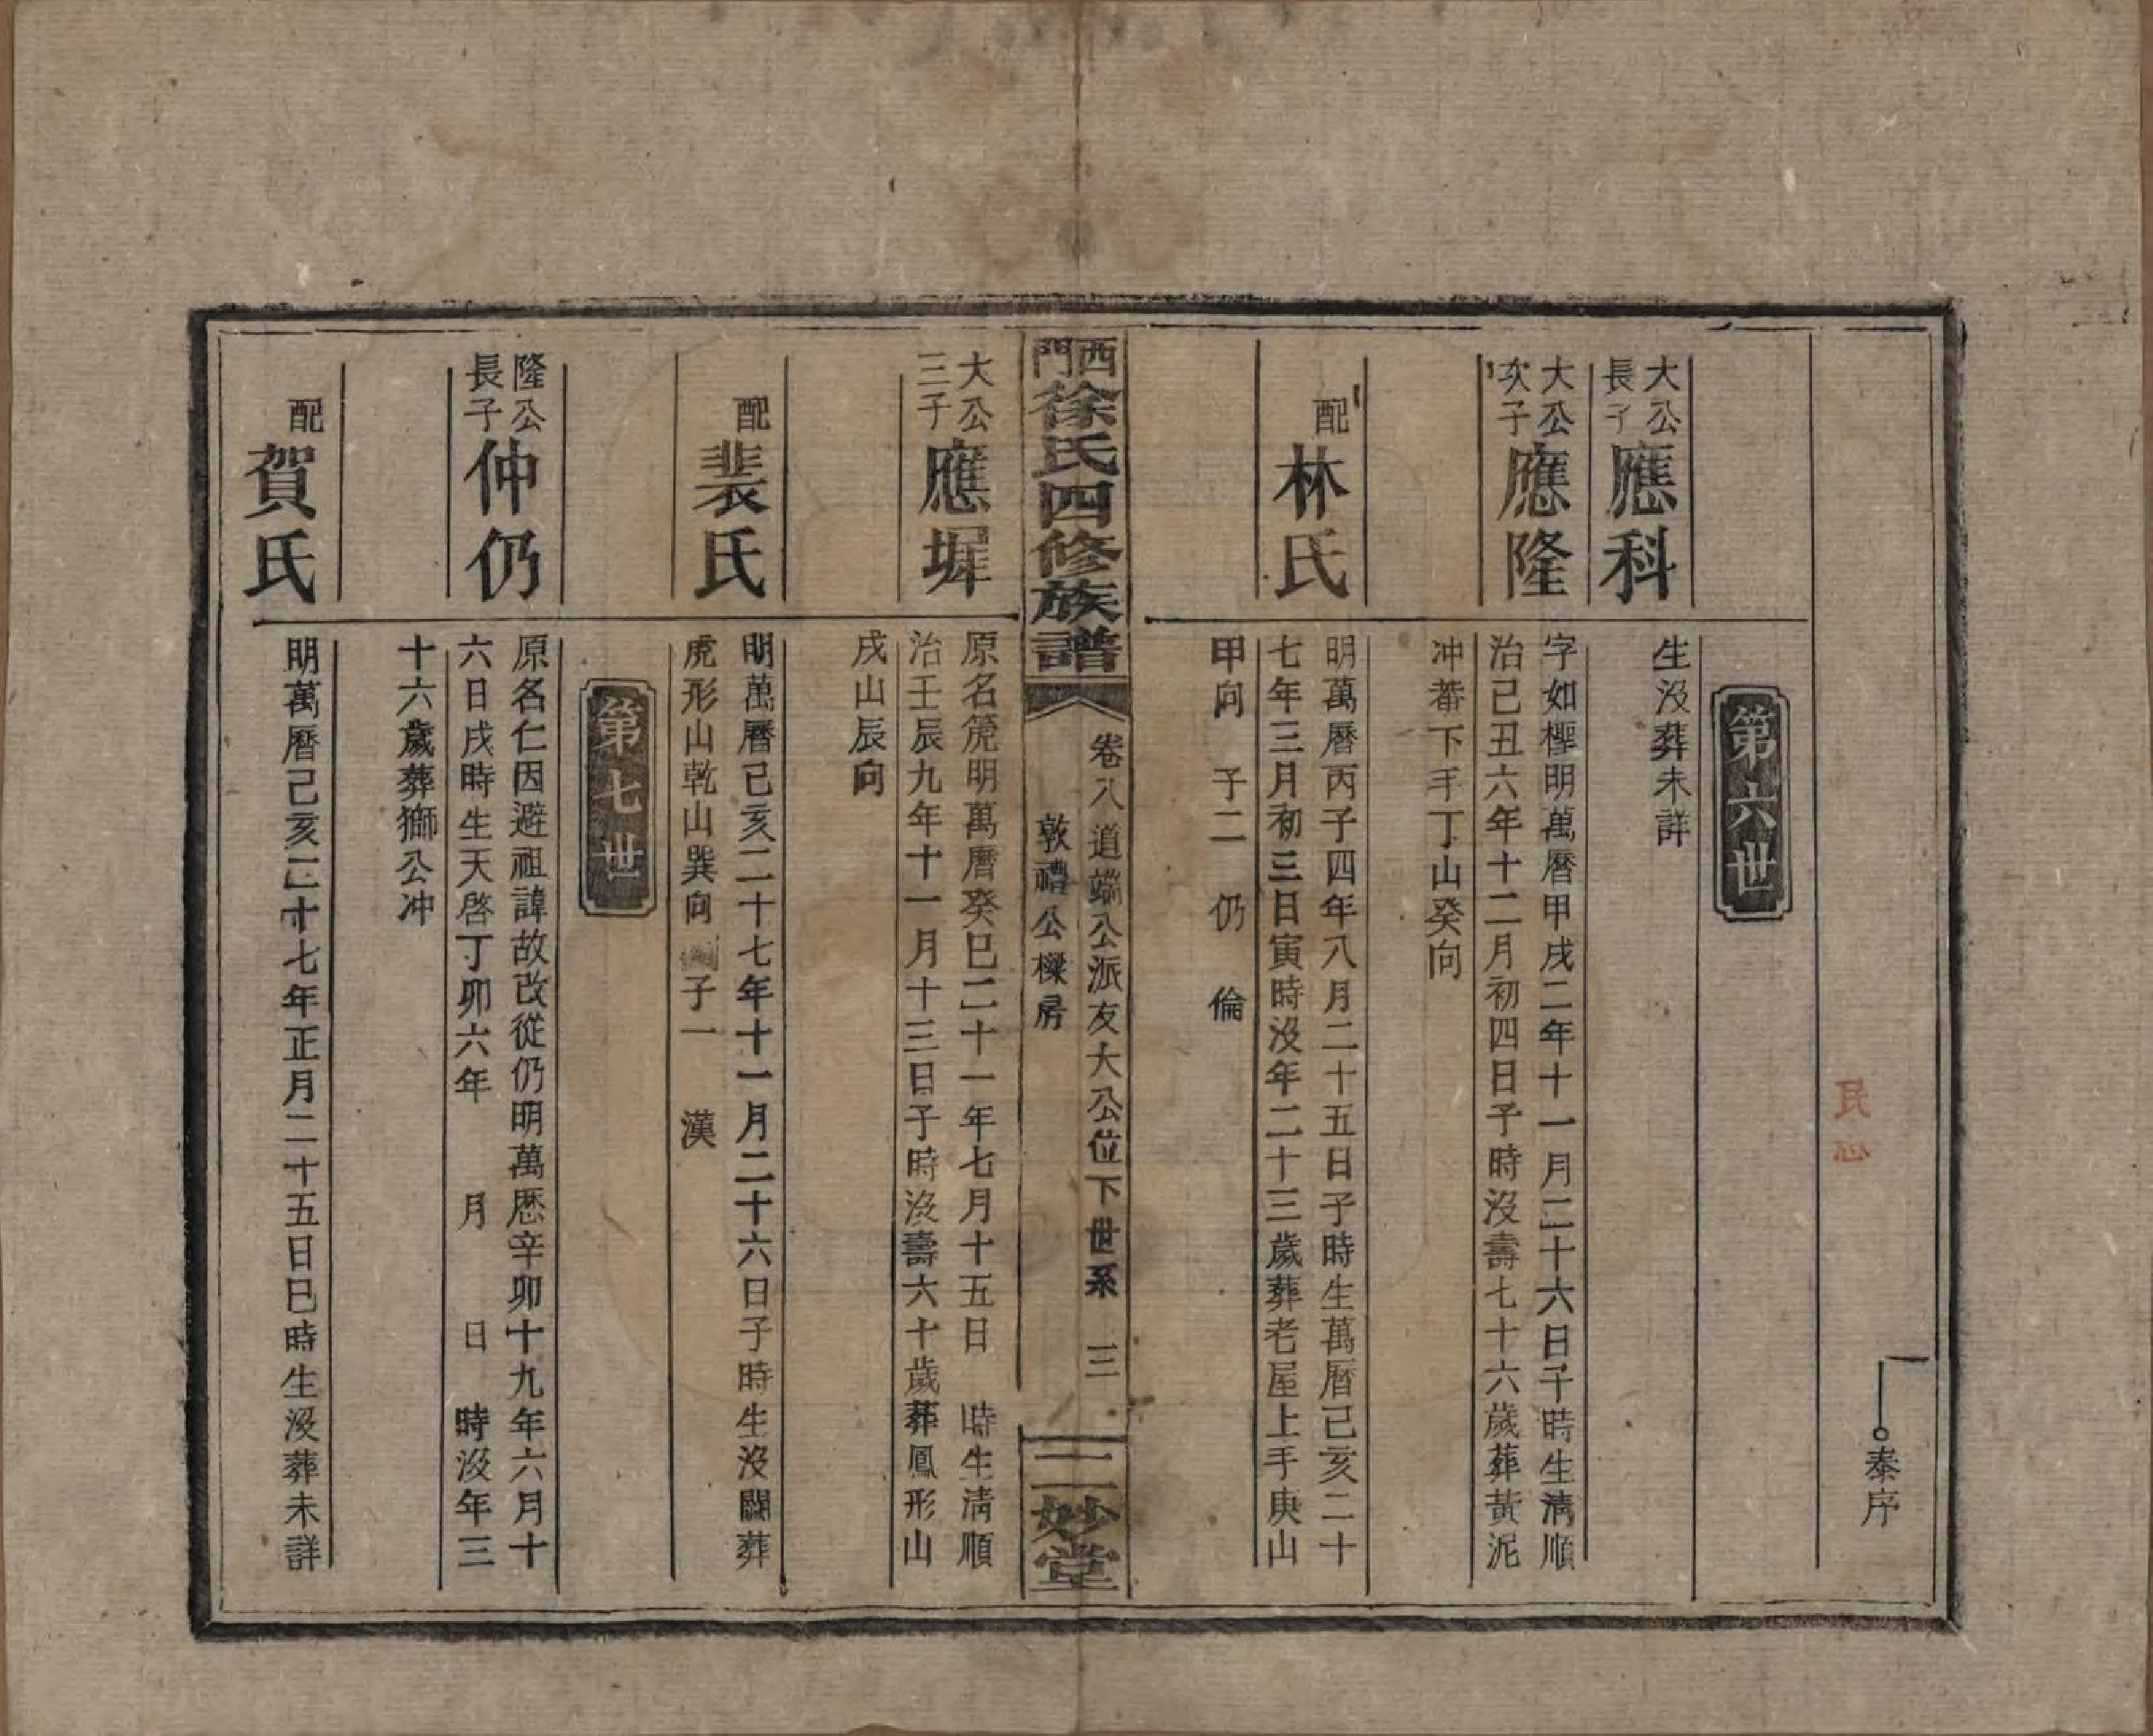 泰序
第六世
大公長子應科
生沒葬未詳
大公次子應隆
字如檉明萬曆甲戌二年十一月二十六日子時生清順
治己丑六年十二月初四日子時沒壽七十六歲葬黃泥
冲蕃下手丁山癸向
配林氏
明萬曆丙子四年八月二十五日子時生萬曆己亥二十
七年三月初三日寅時沒年二十三歲葬老屋上手庚山
甲向 子二 仍 倫
西門徐氏四修族譜
卷八 道端公派友大公位下世系 三
敦禮公樑房
二妙堂
大公三子應墀
原名箎明萬曆癸巳二十一年七月十五日 時生清順
治壬辰九年十一月十三日子時沒壽六十歲葬鳳形山
戌山辰向
配裴氏
明萬曆己亥二十七年十一月二十六日子時生沒闕葬
虎形山乾山巽向 子一 漢
第七世
隆公長子仲仍
原名仁因避祖諱故改從仍明萬歷辛卯十九年六月十
六日戌時生天啓丁卯六年 月 日 時沒年三
十六歲葬獅公冲
配賀氏
明萬曆己亥二十七年正月二十五日巳時生沒葬未詳